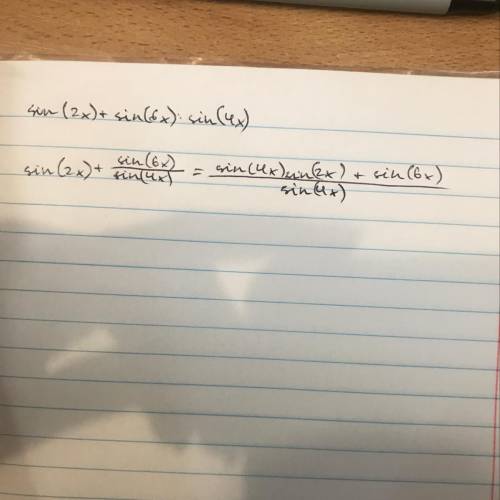 sin(2x)+sin(6x):sin(4x)
sin(2x)+ sin(6x)/sin(4x) = (sin(4x)sin(2x) + sin(6x))/sin(4x)